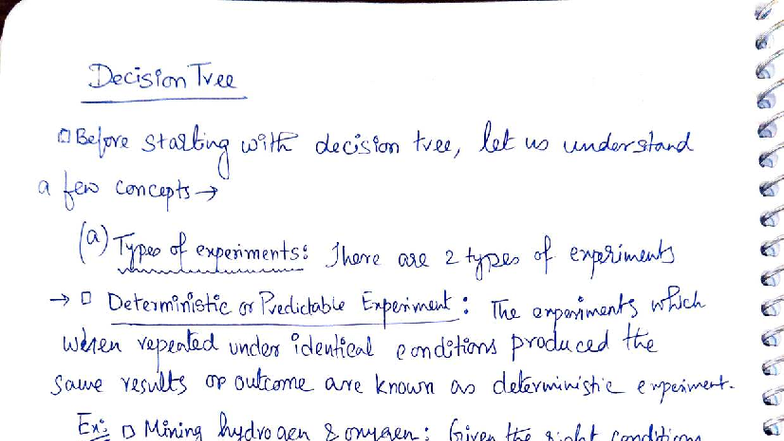 Decision Tree
□ Before starting with decision tree, let us understand
a few concepts →
(a) Types of experiments: There are 2 types of experiments
→ □ Deterministic or Predictable Experiment: The experiments which
when repeated under identical conditions produced the
same results or outcome are known as deterministic experiment.
Ex: □ Mining hydrogen & oxygen: Given the right conditions